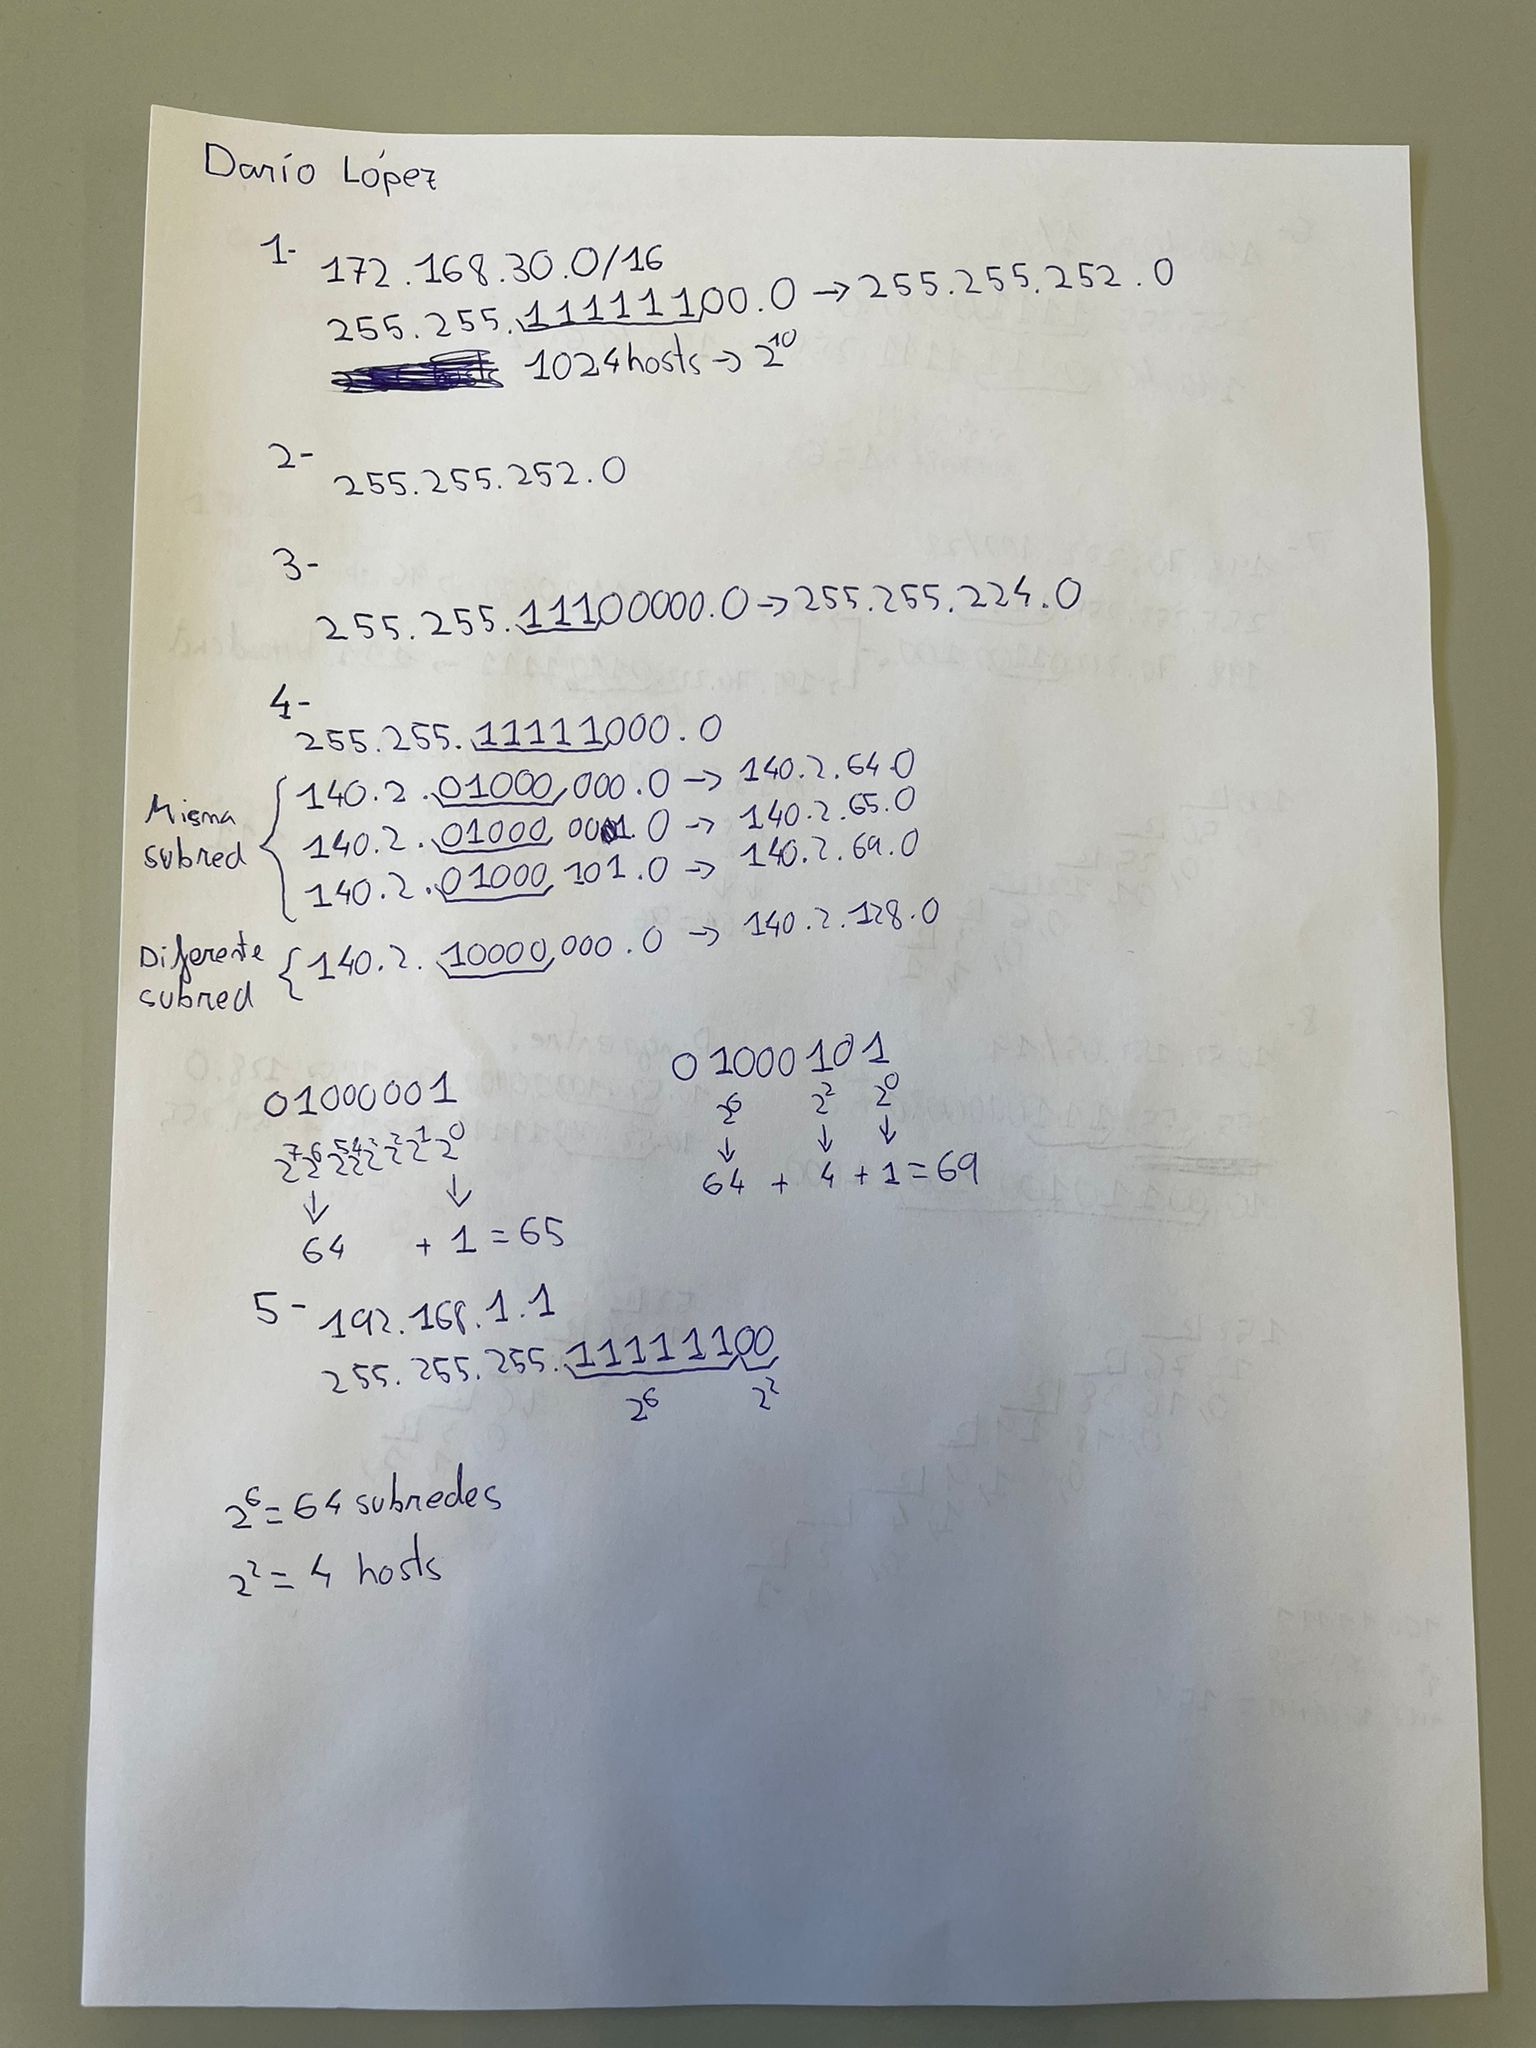 Darío López
1- 172.168.30.0/16
255.255.11111100.0 → 255.255.252.0
1024 hosts → 2^10
2- 255.255.252.0
3-
255.255.11100000.0 → 255.255.224.0
4-
255.255.11111000.0
Misma subred { 140.2.01000,000.0 → 140.2.64.0
140.2.01000,001.0 → 140.2.65.0
140.2.01000,101.0 → 140.2.69.0
Diferente subred { 140.2.10000,000.0 → 140.2.128.0
01000001
2^7 2^6 2^5 2^4 2^3 2^2 2^1 2^0
↓ ↓
64 + 1 = 65
01000101
2^6 2^2 2^0
↓ ↓ ↓
64 + 4 + 1 = 69
5- 192.168.1.1
255.255.255.11111100
2^6 2^2
2^6 = 64 subredes
2^2 = 4 hosts